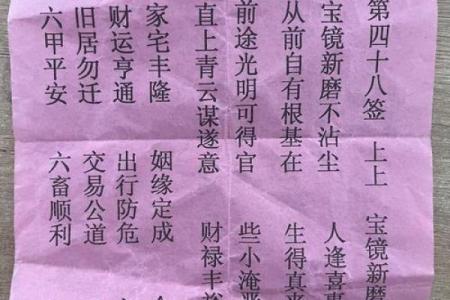 第四十八签 上上 宝镜新磨
宝镜新磨不沾尘 人逢喜事
从前自有根基在 生得真来
前途光明可得官 些小淹
直上青云谋遂意 财禄丰
家宅丰隆 姻缘定成
财运亨通 出行防危
旧居勿迁 交易公道
六甲平安 六畜顺利